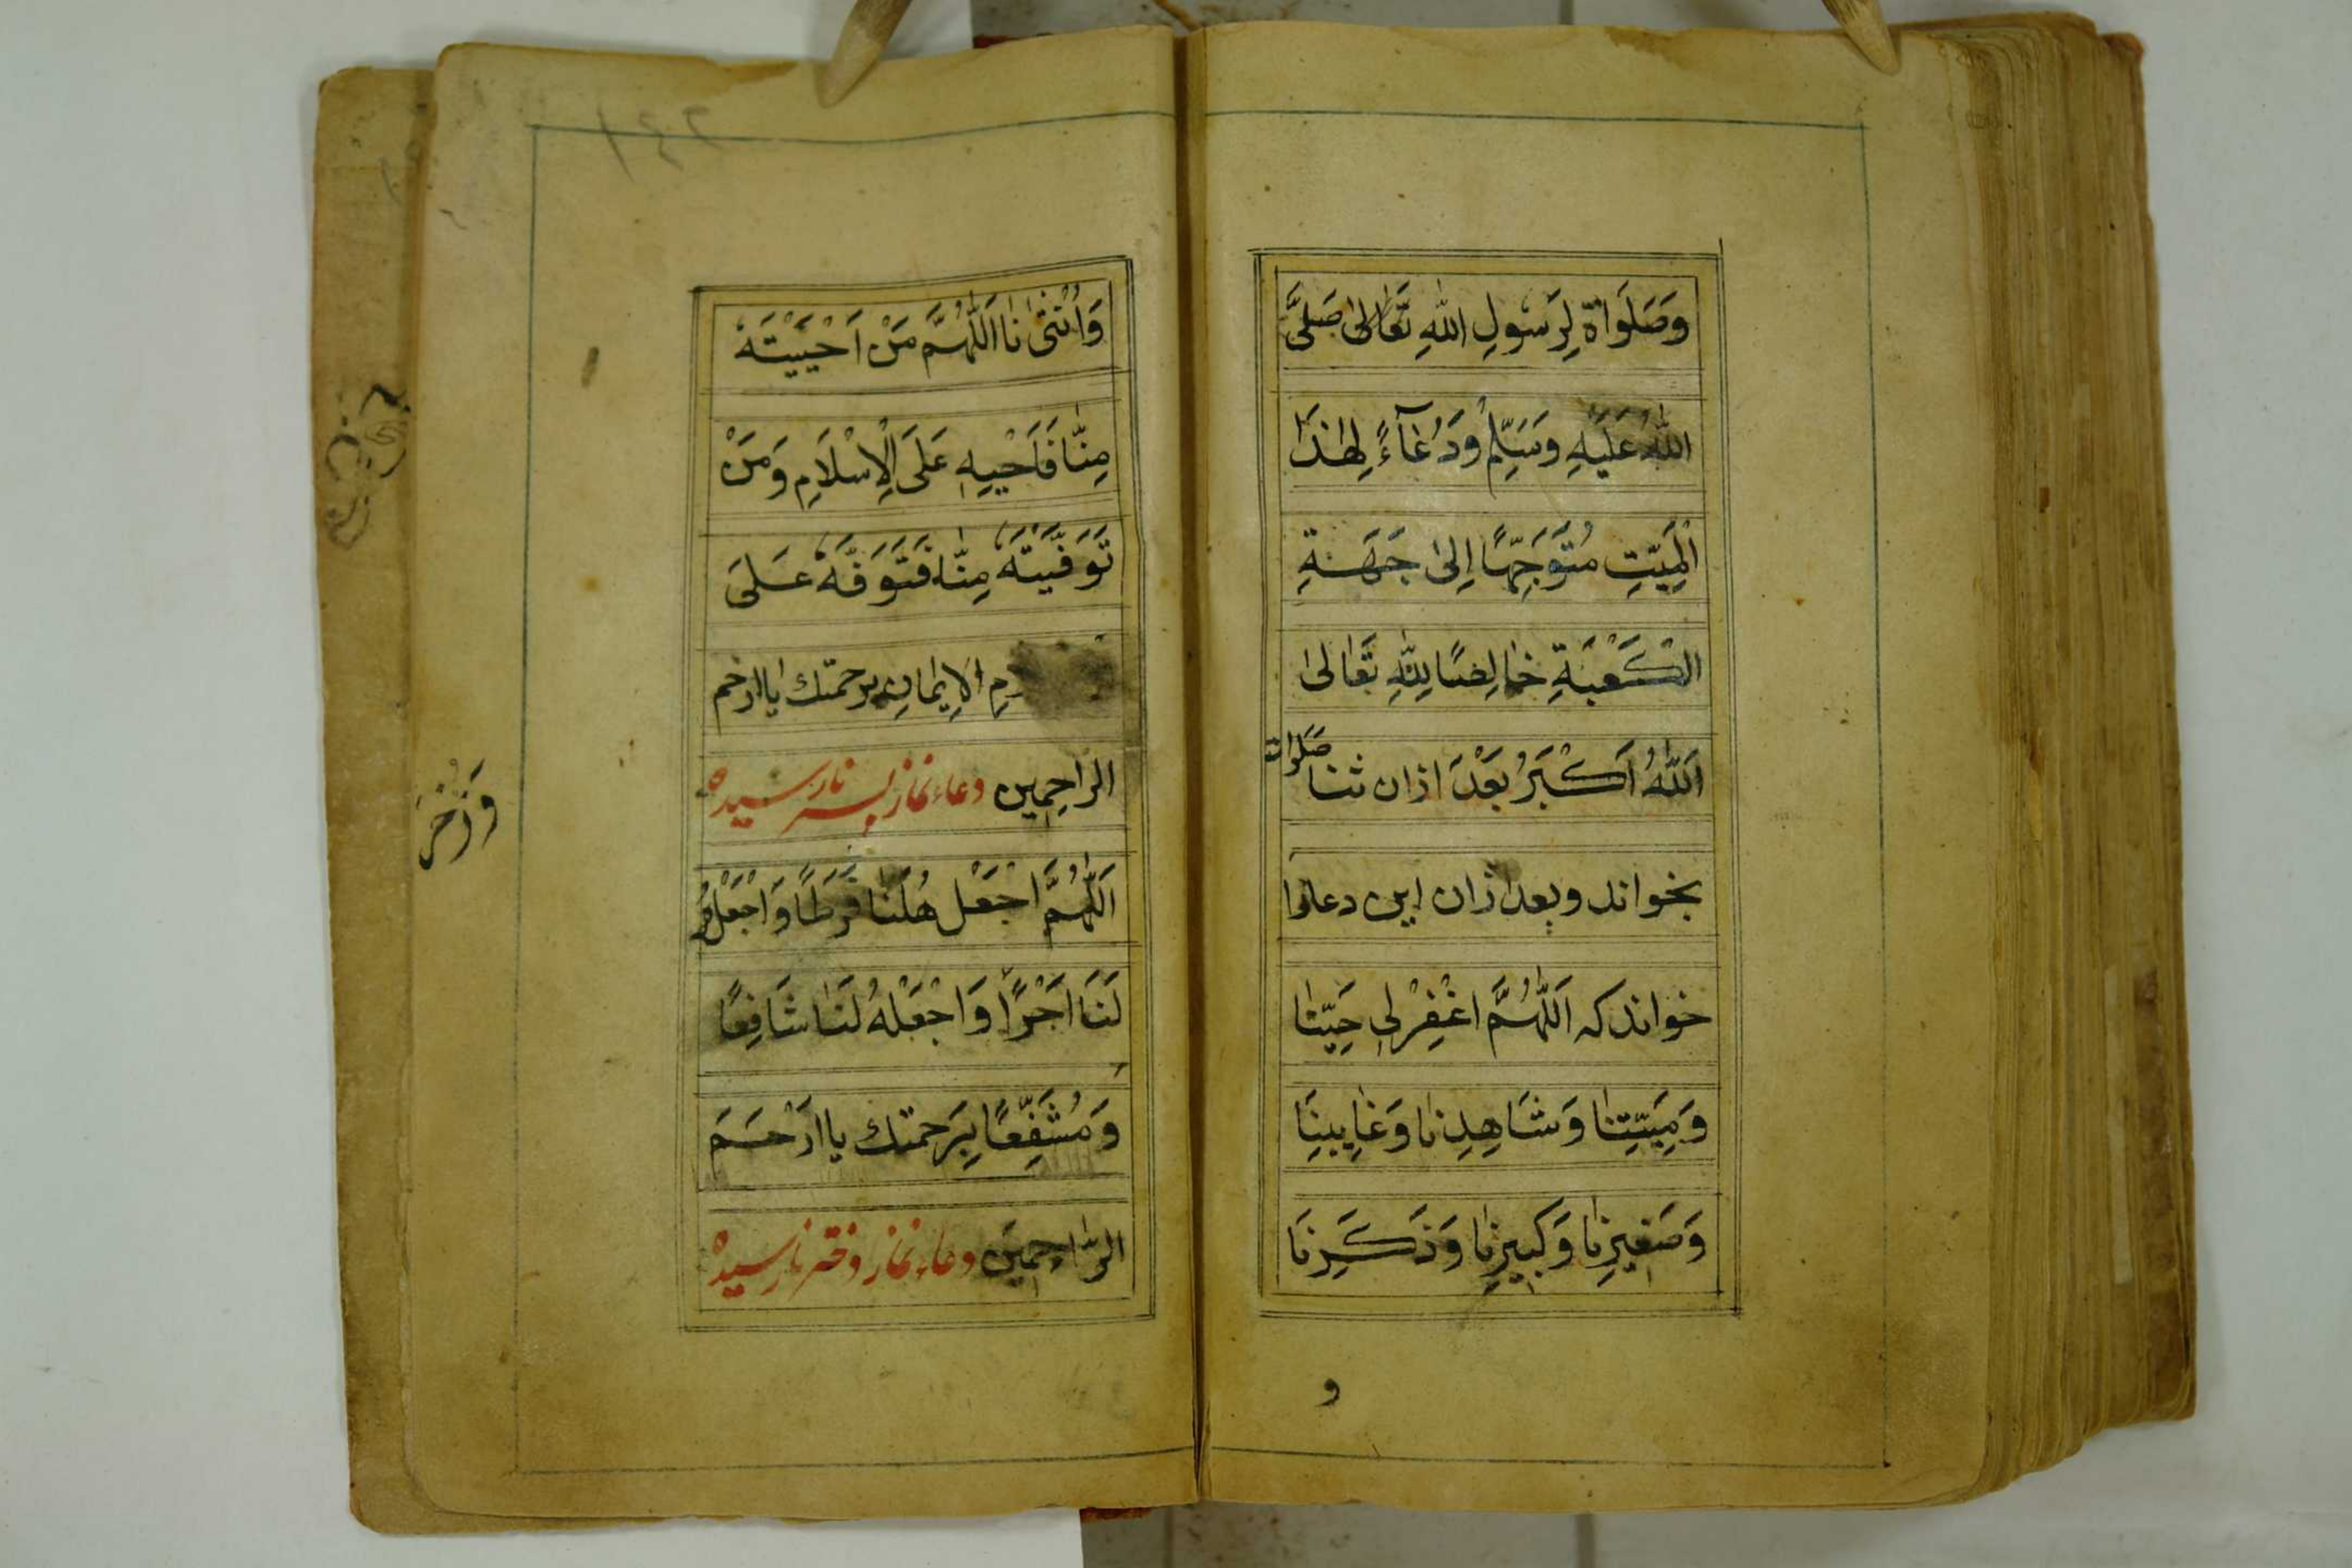 وَصَلَوَاةً لِرَسُولِ اللهِ تَعَالىٰ صَلَّى
اللهُ عَلَيْهِ وَسَلِّمْ وَدُعَآءً لِهٰذَا
الْمَيِّتِ مُتَوَجِّهًا اِلىٰ جَهَةِ
الْكَعْبَةِ خَالِصًا لِلّٰهِ تَعَالىٰ
اَللهُ اَكْبَرُ بَعْدَ اذان ثنا صَلَوات
بخواند وبعد اذان این دعا را
خواند که اَللّٰهُمَّ اغْفِرْلِی حَیِّنَا
وَمَیِّتِنَا وَشَاهِدِنَا وَغَایِبِنَا
وَصَغِیرِنَا وَکَبِیرِنَا وَذَکَرِنَا
و
وَاُنْثٰىنَا اَللّٰهُمَّ مَنْ اَحْيَيْتَهُ
مِنَّا فَاَحْيِهِ عَلَى الْاِسْلَامِ وَمَنْ
تَوَفَّيْتَهُ مِنَّا فَتَوَفَّهُ عَلَى
الاِيمَانِ برحمتك يا ارحم
الراحِمِين دعاء نماز پسر نارسیده
اَللّٰهُمَّ اجْعَلْهُ لَنَا فَرَطًا وَاجْعَلْهُ
لَنَا اَجْرًا وَاجْعَلْهُ لَنَا شَافِعًا
وَمُشَفِّعًا بِرَحمتك يا ارْحَمَ
الرَّاحِمِينَ دعاء نماز دختر نارسیده